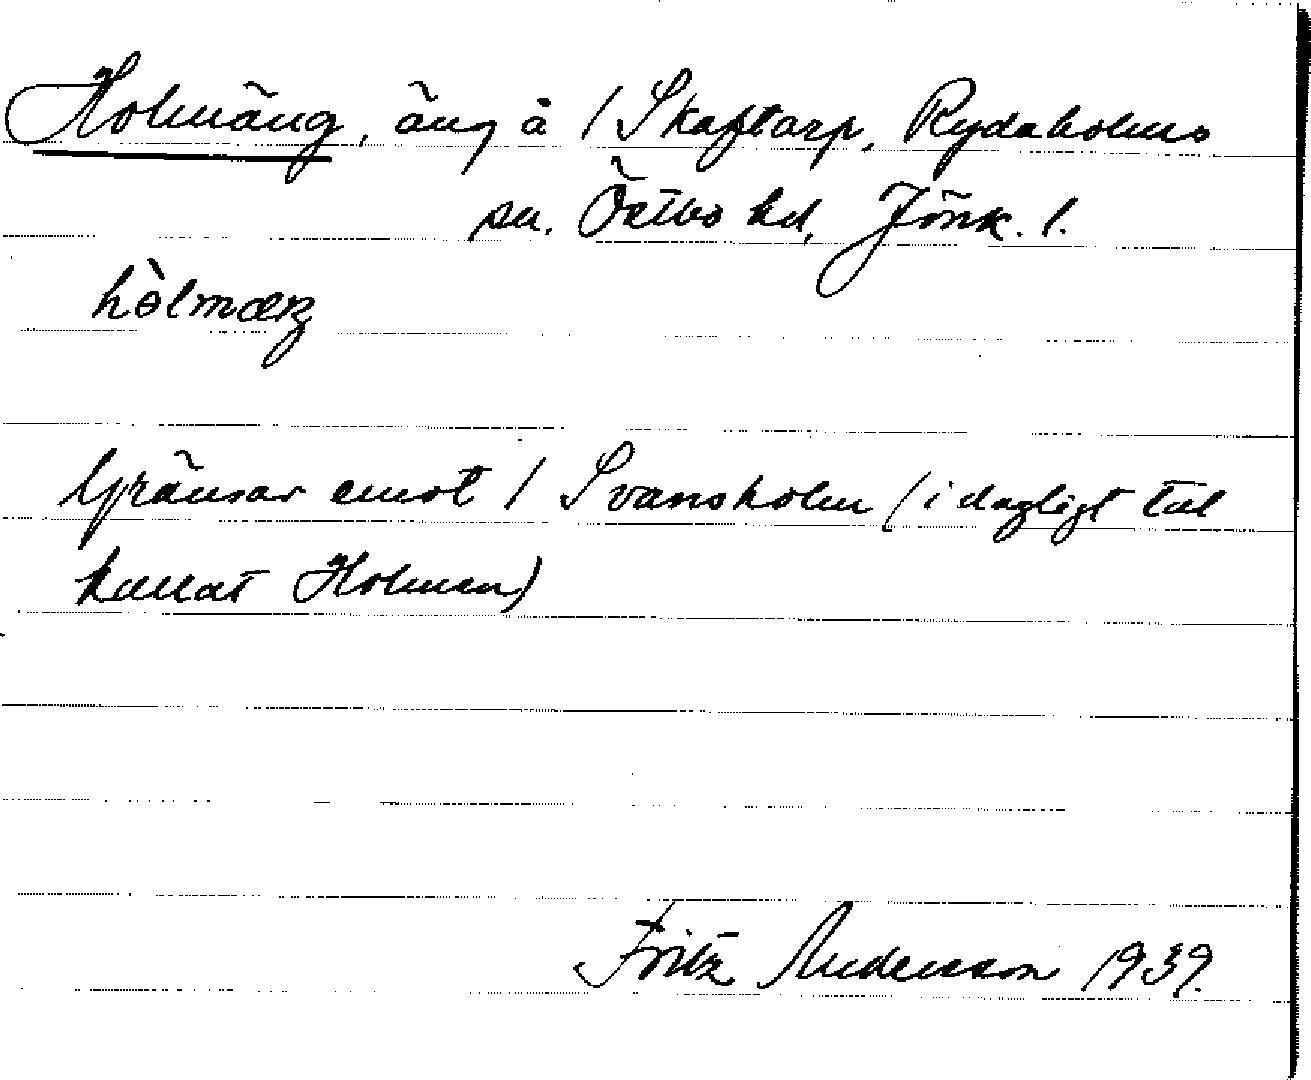 Holmäng, äng å / Skaftarp, Rydaholms
sn. Östbo hd, Jönk. l.
hòlmæŋ
Gränsar emot / Svansholm (i dagligt tal
kallat Holmen)
Fritz Andersson 1939.